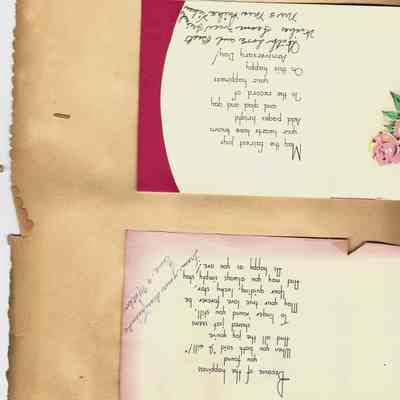 Because of the happiness
you found
When you both said "I will!"
And all the joy you've
shared seems
To linger round you still
May your true love forever be
Your guiding, lucky star
May you always simply stay
As happy as you are!
From your
May the fairest joys
your hearts have known
Add pages bright
and glad and gay
To the record of
your happiness
On this happy
Anniversary Day!
With love and Best
Wishes from
Mrs Mike